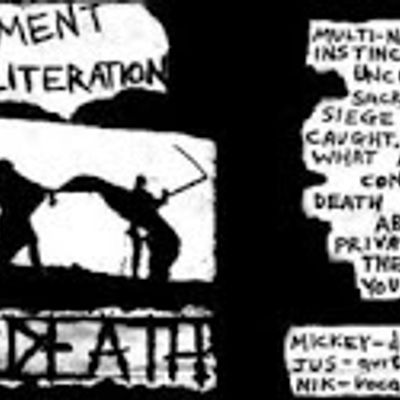 MENT
LITERATION
DEATH
MULTI-N
INSTINC
UNC
SIEGE
CAUGHT.
WHAT A
CON
DEATH
AB
PRIVA
THE
YOU
MICKEY-
JUS-
NIK-VOCA